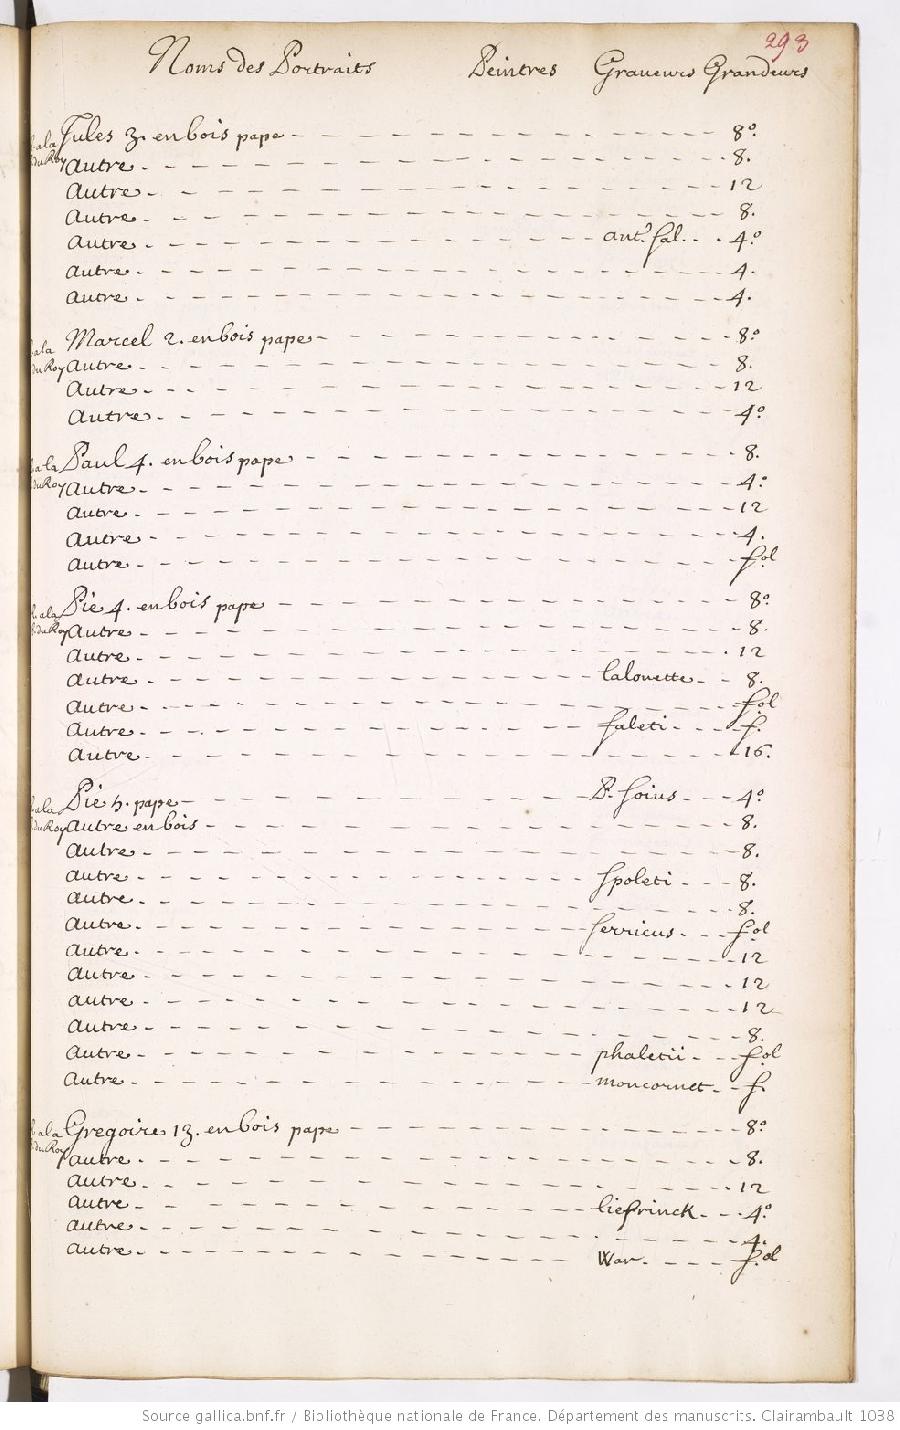 293
Noms des Portraits Peintres Graveurs Grandeurs
Jules 3. en bois pape 8º
a la
du Roy
autre 8.
autre 12
autre 8.
autre antº sal. 4º
autre 4.
autre 4.
Marcel 2. en bois pape 8º
a la
du Roy
autre 8.
autre 12
autre 4º
Paul 4. en bois pape 8.
a la
du Roy
autre 4º
autre 12
autre 4.
autre fol
Pie 4. en bois pape 8º
a la
du Roy
autre 8.
autre 12
autre lalouette 8.
autre fol
autre faleti f.
autre 16.
Pie 5. pape P. soius 4º
a la
du Roy
autre en bois 8.
autre 8.
autre spoleti 8.
autre 8.
autre serricus fol
autre 12
autre 12
autre 12
autre 8.
autre phaletii fol
autre moncornet f.
Gregoire 13. en bois pape 8º
a la
du Roy
autre 8.
autre 12
autre liefrinck 4º
autre 4.
autre War. fol
Source gallica.bnf.fr / Bibliothèque nationale de France. Département des manuscrits. Clairambault 1038